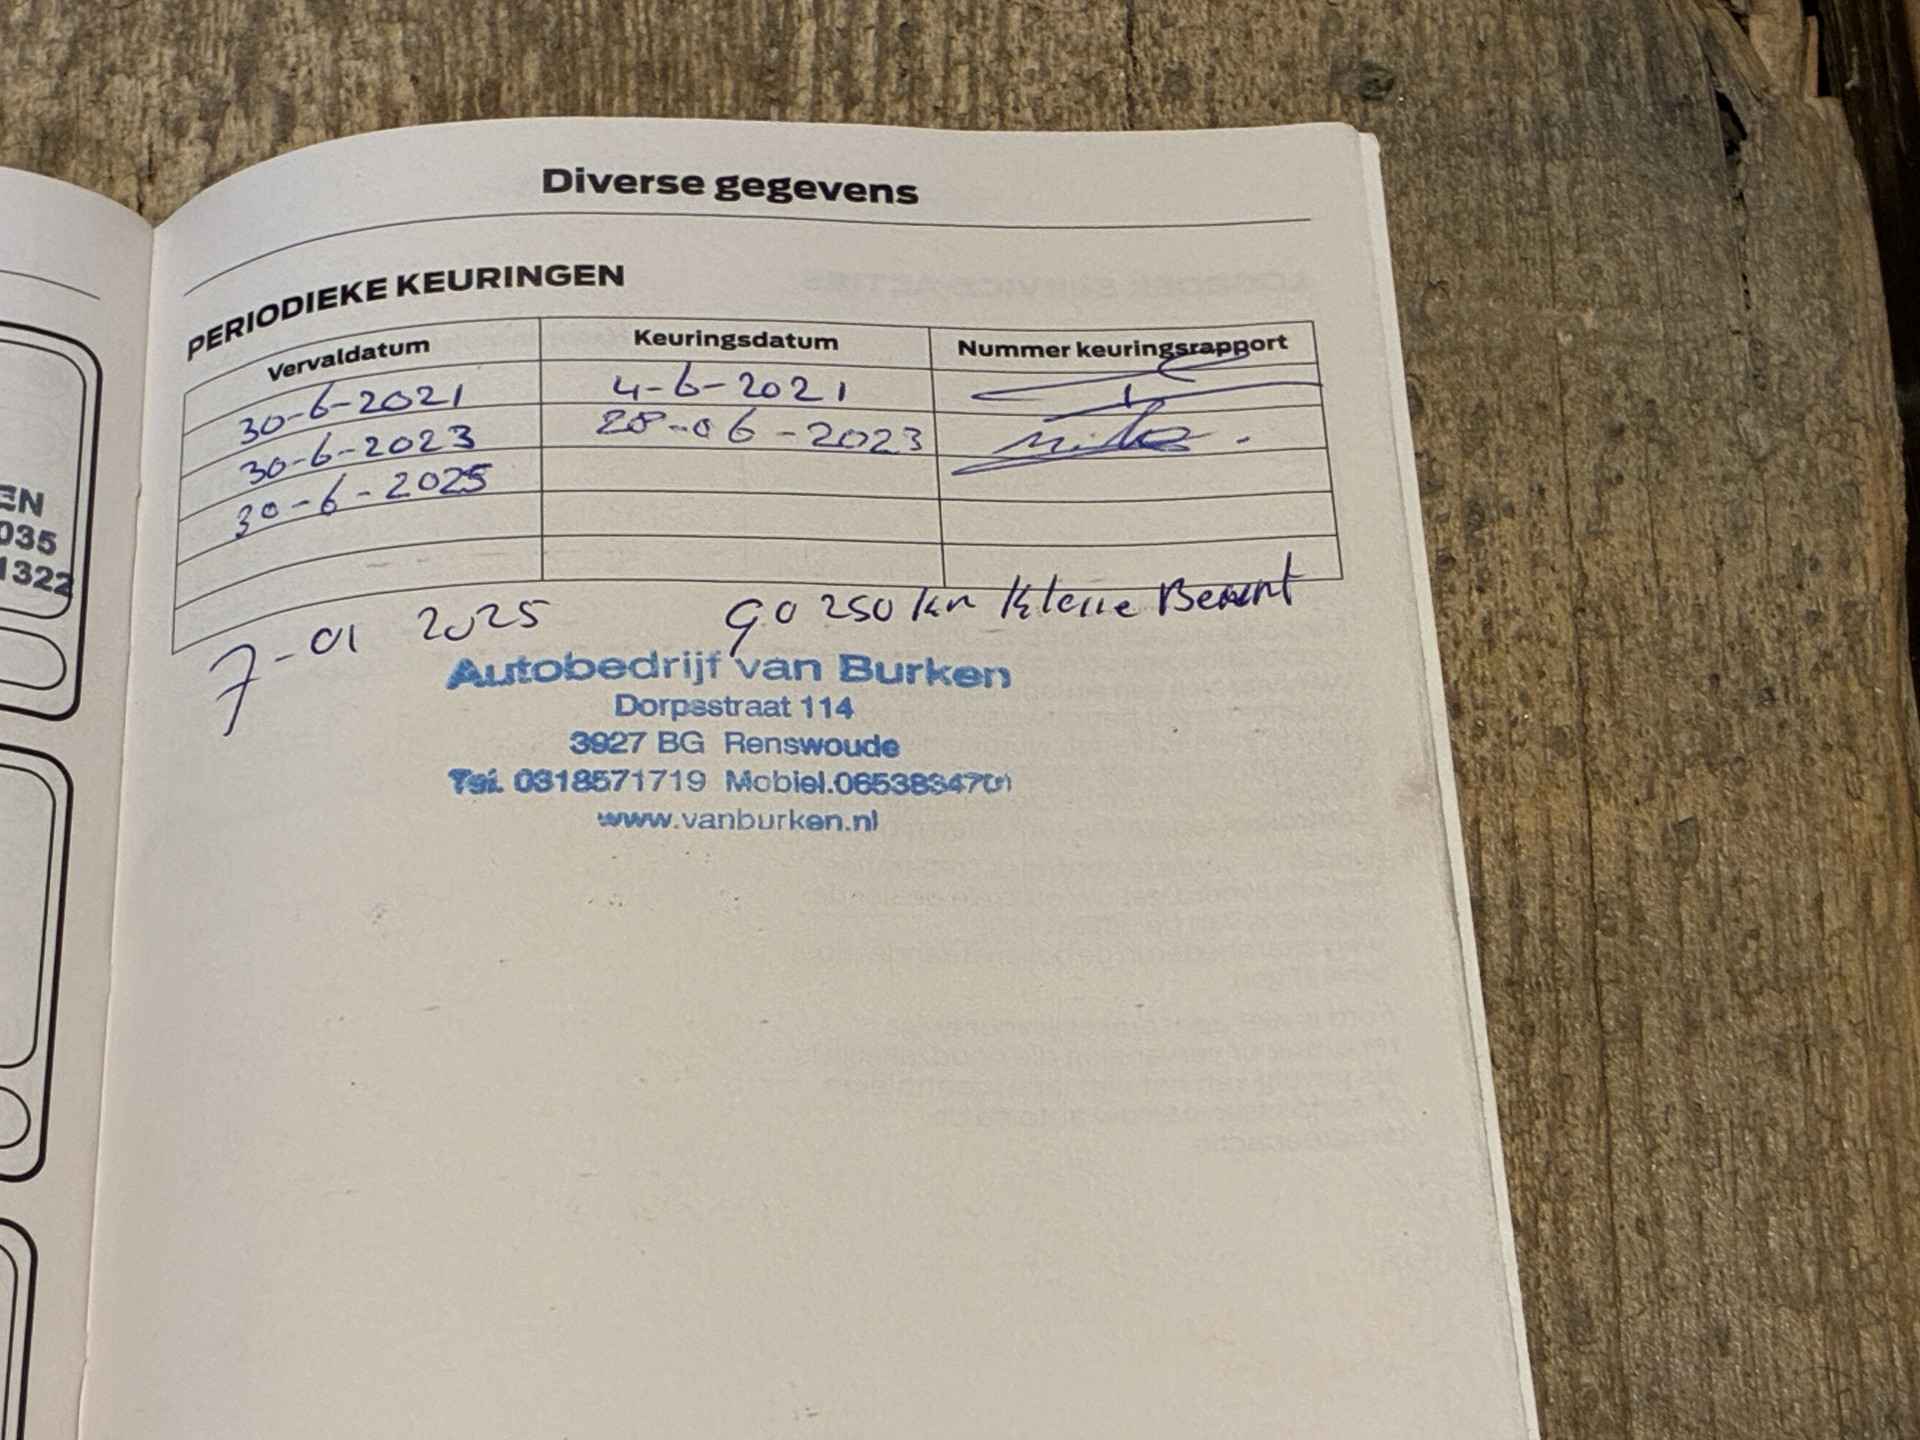 Diverse gegevens
PERIODIEKE KEURINGEN
Vervaldatum Keuringsdatum Nummer keuringsrapport
30-6-2021 4-6-2021
30-6-2023 28-06-2023
30-6-2025
7-01 2025 90 250 km Kleine Beurt
Autobedrijf van Burken
Dorpsstraat 114
3927 BG Renswoude
Tel. 0318571719 Mobiel.
www.vanburken.nl
EN
035
1322